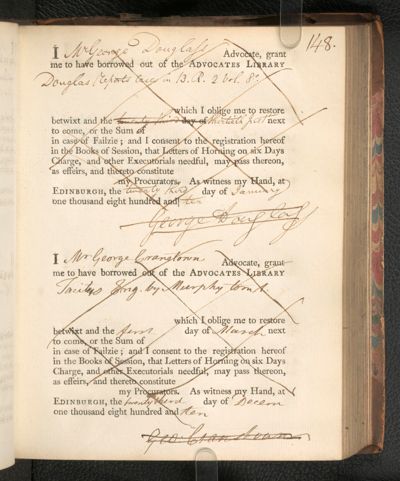 148.
I Mr George Douglass Advocate, grant
me to have borrowed out of the ADVOCATES LIBRARY
Douglas Reports in B.R. 2 vol. 8º
which I oblige me to restore
betwixt and the day of next
to come, or the Sum of
in case of Failzie; and I consent to the registration hereof
in the Books of Session, that Letters of Horning on six Days
Charge, and other Executorials needful, may pass thereon,
as effeirs, and thereto constitute
my Procurators. As witness my Hand, at
EDINBURGH, the twenty third day of January
one thousand eight hundred and ten
George Douglass
I Mr George Cranstown Advocate, grant
me to have borrowed out of the ADVOCATES LIBRARY
Tacitus Eng. by Murphy tom
which I oblige me to restore
betwixt and the first day of March next
to come, or the Sum of
in case of Failzie; and I consent to the registration hereof
in the Books of Session, that Letters of Horning on six Days
Charge, and other Executorials needful, may pass thereon,
as effeirs, and thereto constitute
my Procurators. As witness my Hand, at
EDINBURGH, the twenty third day of Decem
one thousand eight hundred and ten
Geo Cranstoun